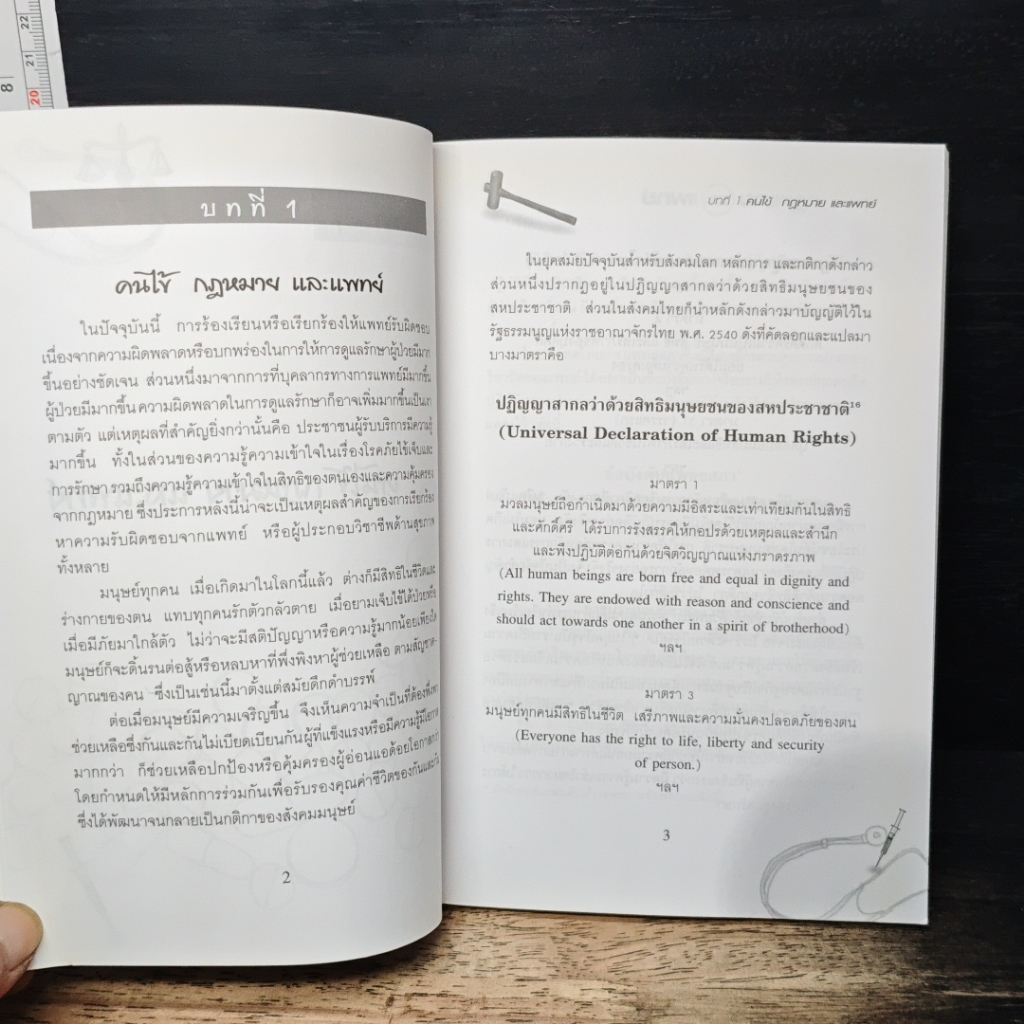 22
21
20
8
บทที่ 1
คนไข้ กฎหมาย และแพทย์
ในปัจจุบันนี้ การร้องเรียนหรือเรียกร้องให้แพทย์รับผิดชอบ
เนื่องจากความผิดพลาดหรือบกพร่องในการให้การดูแลรักษาผู้ป่วยมีมาก
ขึ้นอย่างชัดเจน ส่วนหนึ่งมาจากการที่บุคลากรทางการแพทย์มีมากขึ้น
ผู้ป่วยมีมากขึ้น ความผิดพลาดในการดูแลรักษาก็อาจเพิ่มมากขึ้นเป็นเงา
ตามตัว แต่เหตุผลที่สำคัญยิ่งกว่านั้นคือ ประชาชนผู้รับบริการมีความรู้
มากขึ้น ทั้งในส่วนของความรู้ความเข้าใจในเรื่องโรคภัยไข้เจ็บและ
การรักษา รวมถึงความรู้ความเข้าใจในสิทธิของตนเองและความคุ้มครอง
จากกฎหมาย ซึ่งประการหลังนี้น่าจะเป็นเหตุผลสำคัญของการเรียกร้อง
หาความรับผิดชอบจากแพทย์ หรือผู้ประกอบวิชาชีพด้านสุขภาพ
ทั้งหลาย
มนุษย์ทุกคน เมื่อเกิดมาในโลกนี้แล้ว ต่างก็มีสิทธิในชีวิตและ
ร่างกายของตน แทบทุกคนรักตัวกลัวตาย เมื่อยามเจ็บไข้ได้ป่วยหรือ
เมื่อมีภัยมาใกล้ตัว ไม่ว่าจะมีสติปัญญาหรือความรู้มากน้อยเพียงใด
มนุษย์ก็จะดิ้นรนต่อสู้หรือหลบหาที่พึ่งพิงหาผู้ช่วยเหลือ ตามสัญชาต-
ญาณของคน ซึ่งเป็นเช่นนี้มาตั้งแต่สมัยดึกดำบรรพ์
ต่อเมื่อมนุษย์มีความเจริญขึ้น จึงเห็นความจำเป็นที่ต้องพึ่งพา
ช่วยเหลือซึ่งกันและกันไม่เบียดเบียนกัน ผู้ที่แข็งแรงหรือมีความรู้มีโอกาส
มากกว่า ก็ช่วยเหลือปกป้องหรือคุ้มครองผู้อ่อนแอด้อยโอกาสกว่า
โดยกำหนดให้มีหลักการร่วมกันเพื่อรับรองคุณค่าชีวิตของกันและกัน
ซึ่งได้พัฒนาจนกลายเป็นกติกาของสังคมมนุษย์
2
บทที่ 1 คนไข้ กฎหมาย และแพทย์
ในยุคสมัยปัจจุบันสำหรับสังคมโลก หลักการ และกติกาดังกล่าว
ส่วนหนึ่งปรากฏอยู่ในปฏิญญาสากลว่าด้วยสิทธิมนุษยชนของ
สหประชาชาติ ส่วนในสังคมไทยก็นำหลักดังกล่าวมาบัญญัติไว้ใน
รัฐธรรมนูญแห่งราชอาณาจักรไทย พ.ศ. 2540 ดังที่คัดลอกและแปลมา
บางมาตราคือ
ปฏิญญาสากลว่าด้วยสิทธิมนุษยชนของสหประชาชาติ¹⁶
(Universal Declaration of Human Rights)
มาตรา 1
มวลมนุษย์ถือกำเนิดมาด้วยความมีอิสระและเท่าเทียมกันในสิทธิ
และศักดิ์ศรี ได้รับการรังสรรค์ให้กอปรด้วยเหตุผลและสำนึก
และพึงปฏิบัติต่อกันด้วยจิตวิญญาณแห่งภราดรภาพ
(All human beings are born free and equal in dignity and
rights. They are endowed with reason and conscience and
should act towards one another in a spirit of brotherhood)
ฯลฯ
มาตรา 3
มนุษย์ทุกคนมีสิทธิในชีวิต เสรีภาพและความมั่นคงปลอดภัยของตน
(Everyone has the right to life, liberty and security
of person.)
ฯลฯ
3